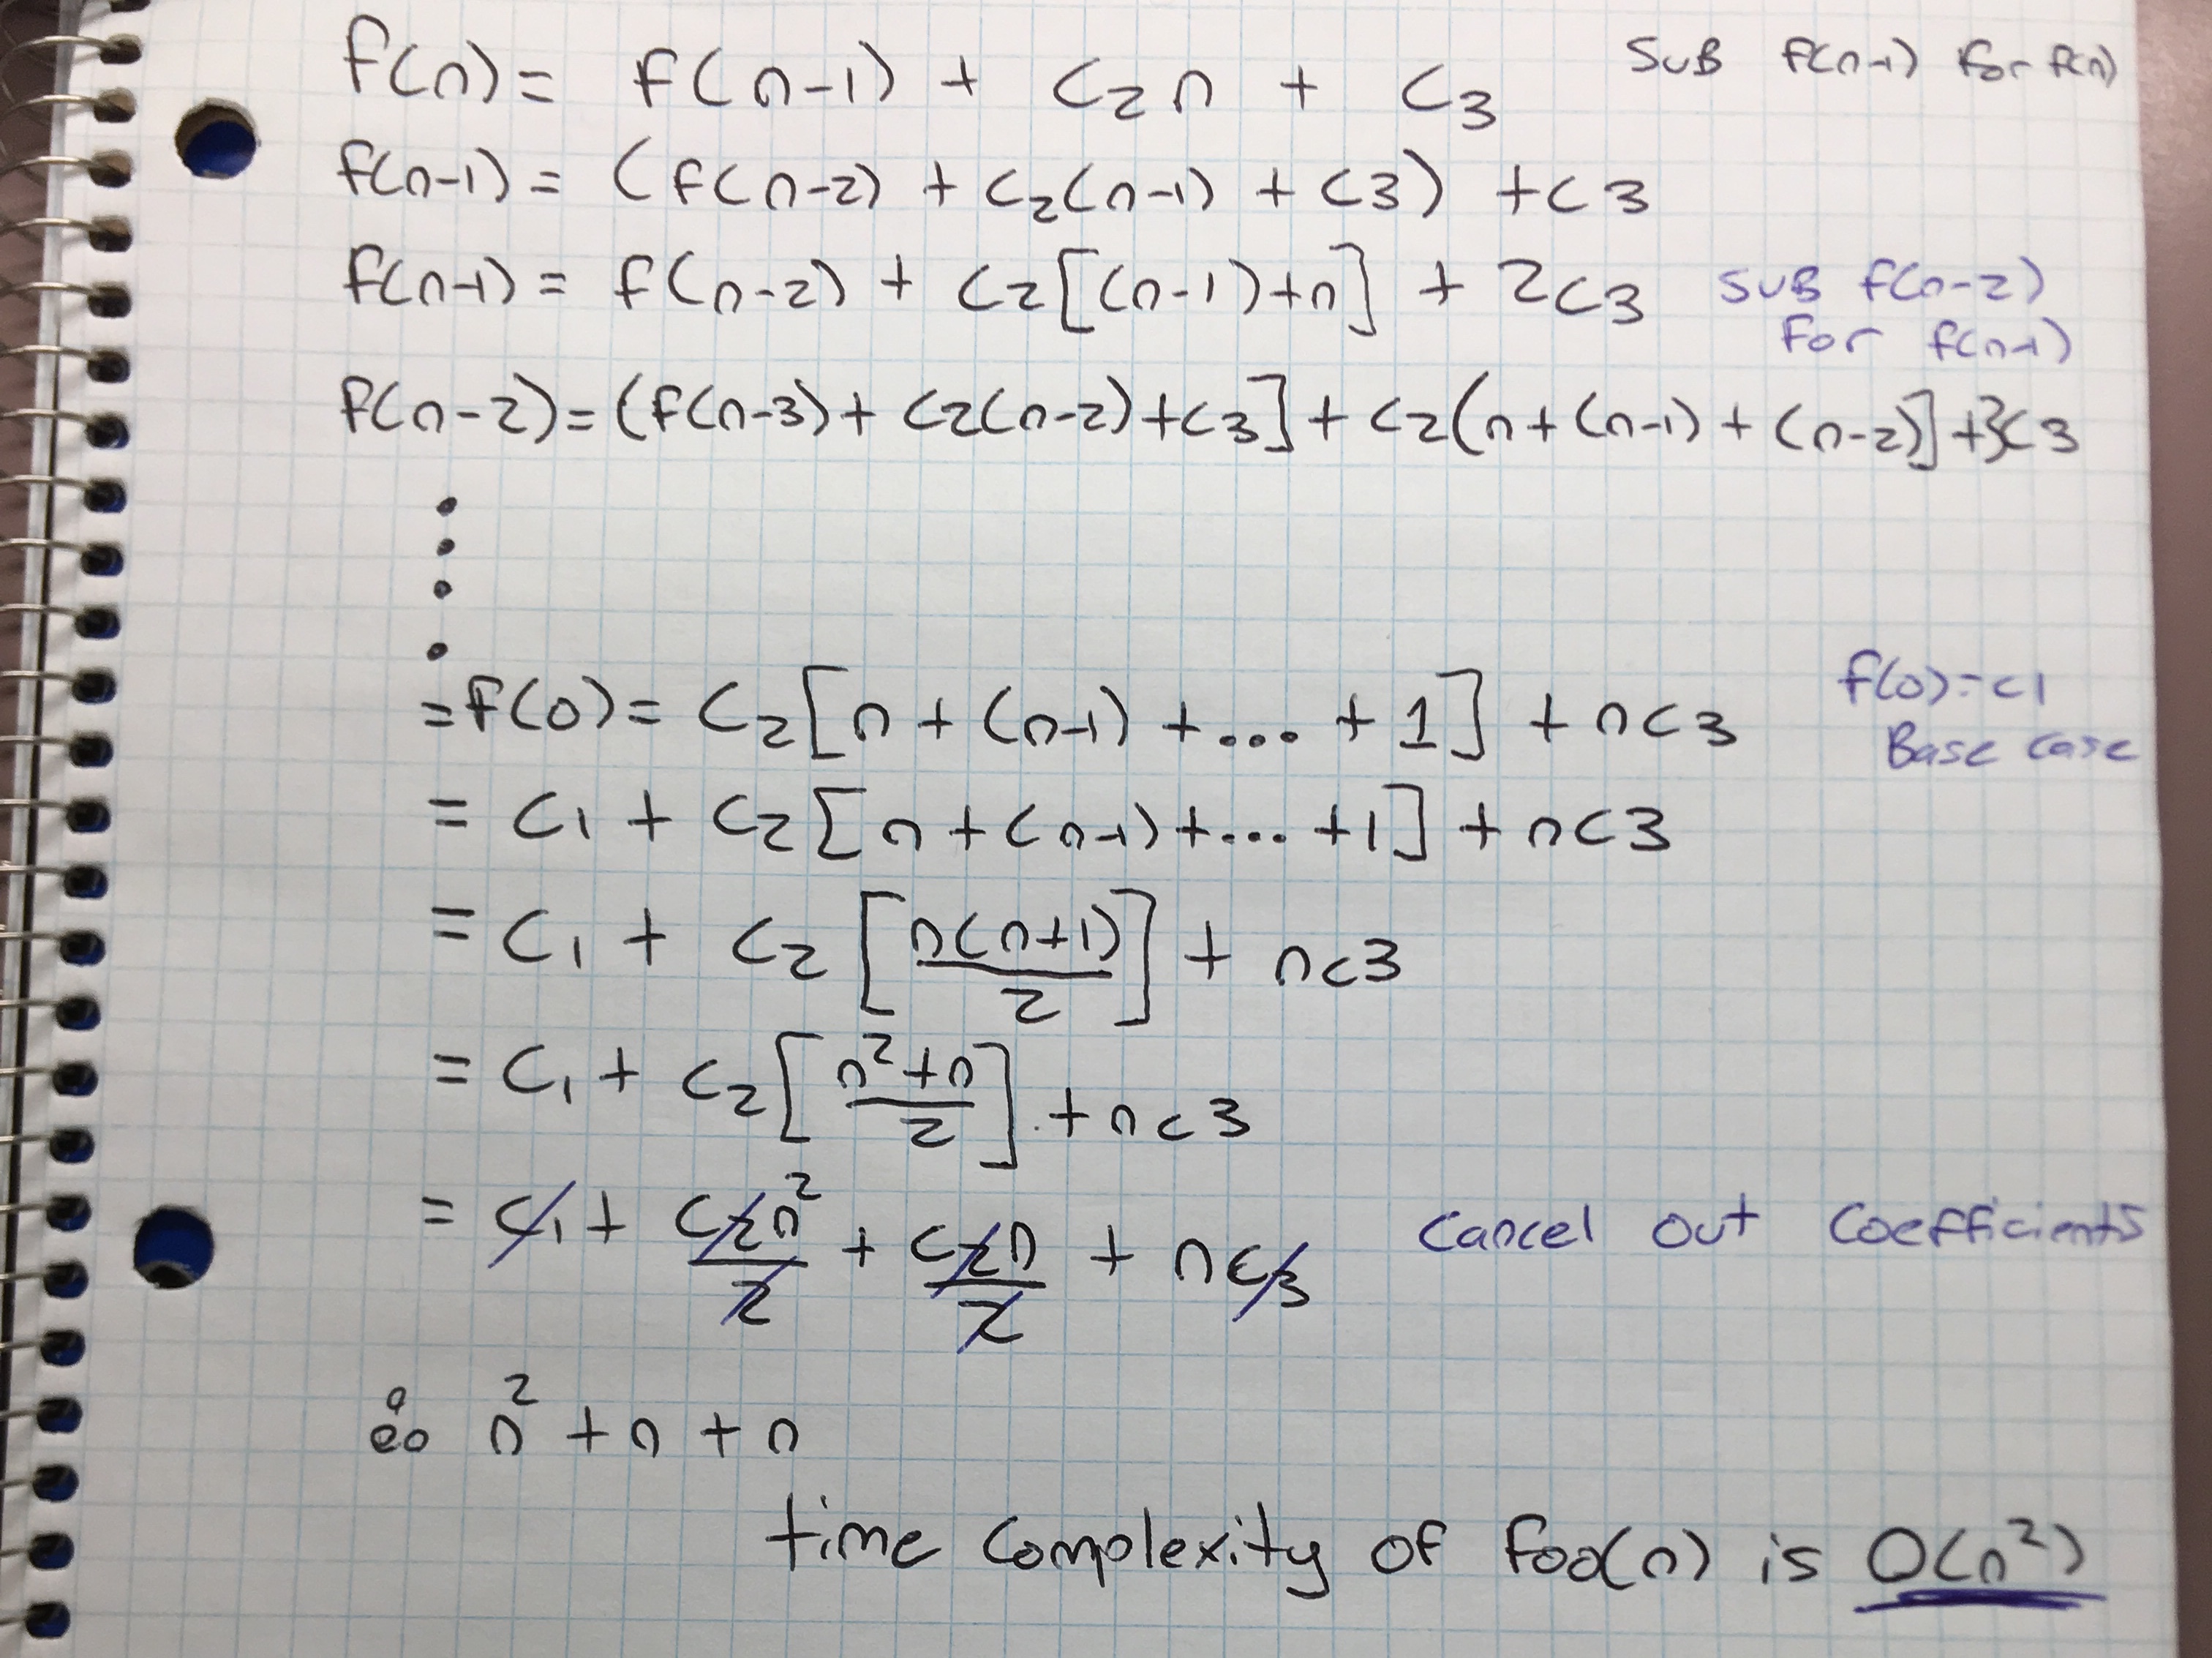 f(n) = f(n-1) + C₂n + C₃ SUB f(n-1) for f(n)
f(n-1) = (f(n-2) + C₂(n-1) + C3) + C3
f(n-1) = f(n-2) + C2[(n-1)+n] + 2C3 SUB f(n-2)
For f(n-1)
f(n-2) = (f(n-3) + C2(n-2) + C3] + C2(n + (n-1) + (n-2)] + 3C3
= f(0) = C₂[n + (n-1) + ... + 1] + nC3 f(0) = C1
Base case
= C₁ + C₂[n + (n-1) + ... + 1] + nC3
= C₁ + C₂ [n(n+1)/2] + nC3
= C₁ + C₂ [n²+n/2] + nC3
= C₁ + C₂n²/2 + C₂n/2 + nC3 Cancel out Coefficients
∴ n² + n + n
time complexity of foo(n) is O(n²)